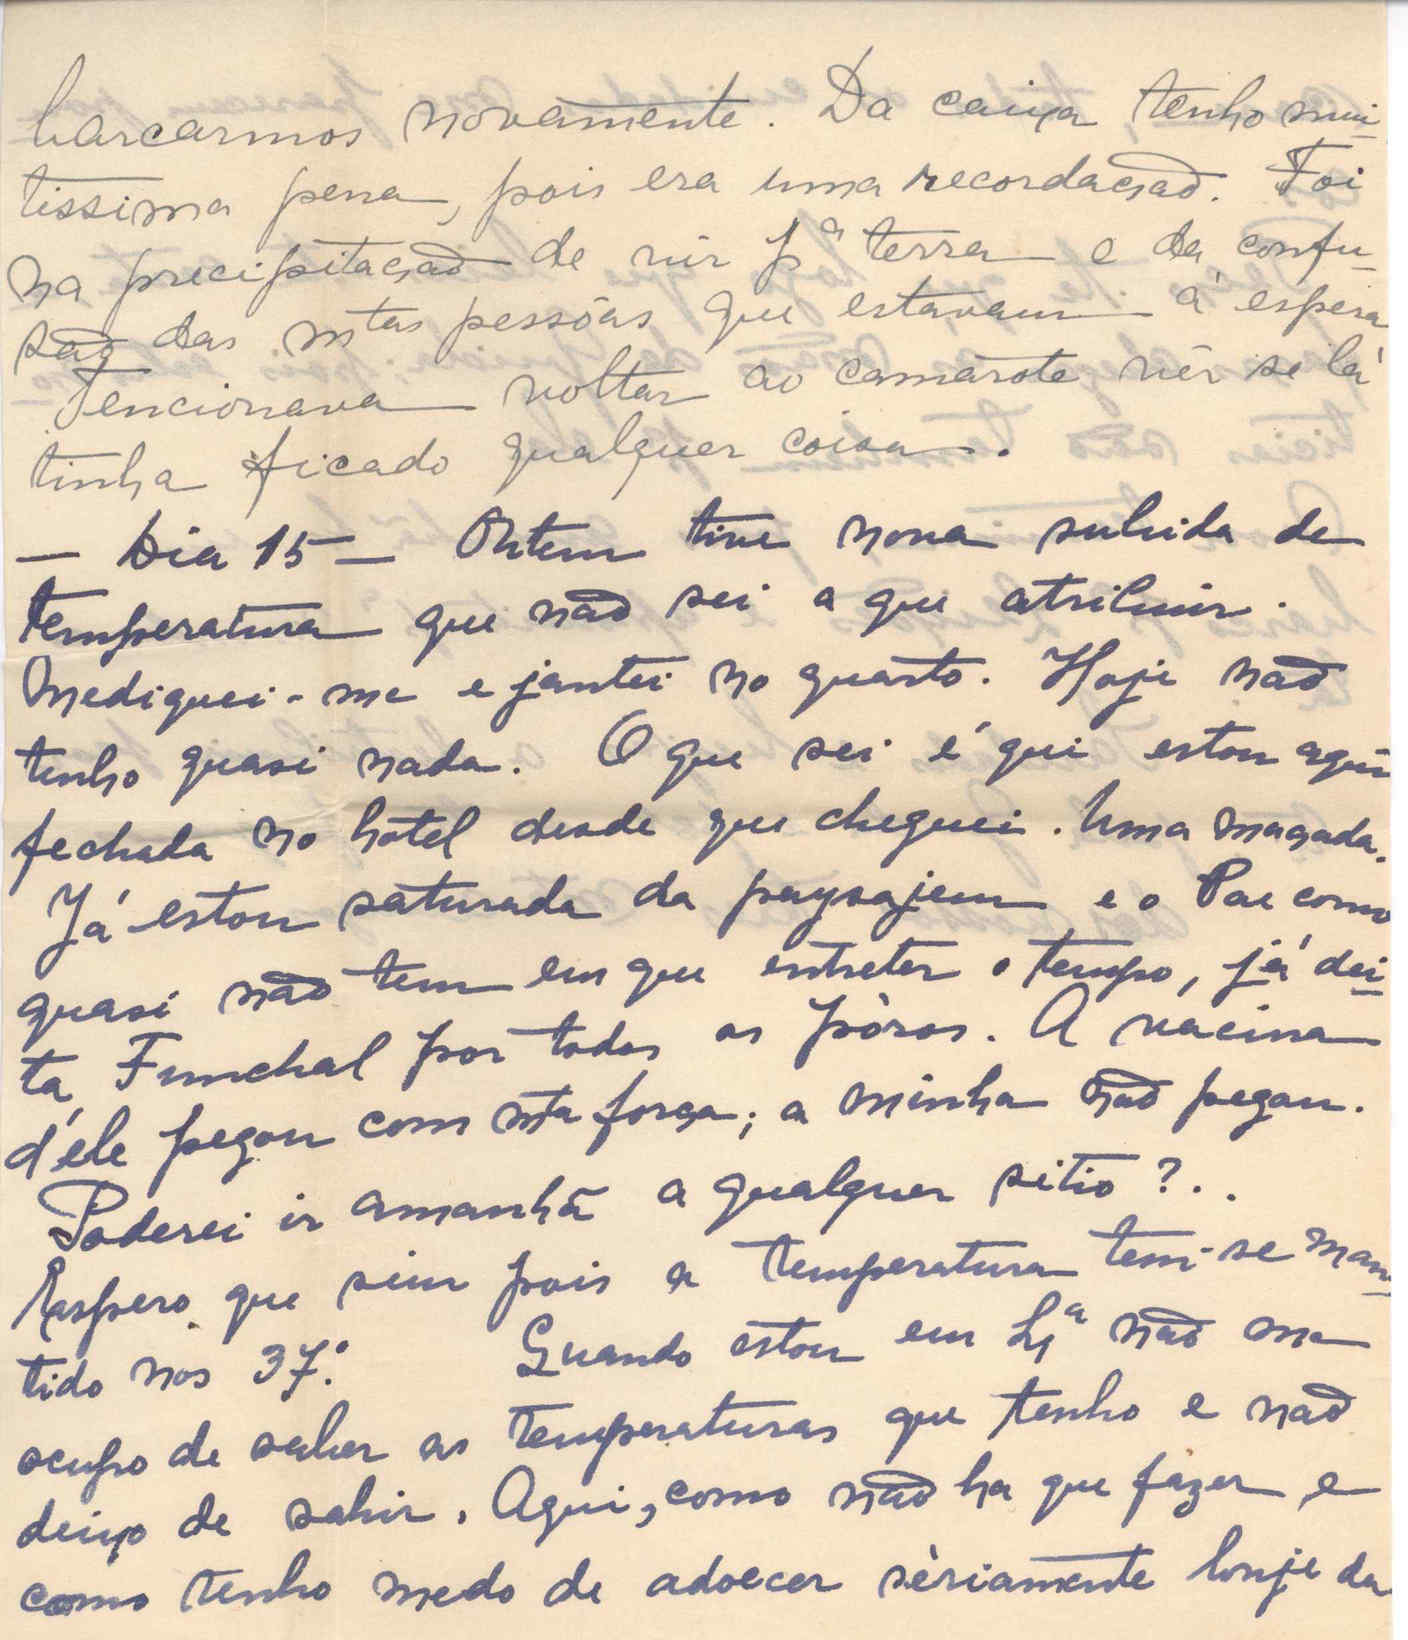 barcarmos novamente. Da caixa, tenho mui-
tissima pena, pois era uma recordação. Foi
na precipitação de vir pª terra e da confu-
são das mtas pessôas que estavam á espera
Tencionava voltar ao camarote vêr se lá
tinha ficado qualquer coisa.
— Dia 15 — Ontem tive nova subida de
temperatura que não sei a que atribuir.
Mediquei-me e jantei no quarto. Hoje não
tenho quasi nada. O que sei é qui estou aqui
fechada no hotel desde que cheguei. Uma maçada.
Já estou saturada da paysajem e o Pae como
quasi não tem em que entreter o tempo, já dei-
ta, Funchal por todos os póros. A vacina
d'ele pegou com mta força; a minha não pegou.
Poderei ir amanhã a qualquer sitio?..
Espero que sim pois a temperatura tem-se man-
tido nos 37.° Quando estou em Lxª não me
ocupo de saber as temperaturas que tenho e não
deixo de sahir. Aqui, como não ha que fazer e
como tenho medo de adoecer sèriamente lonje da